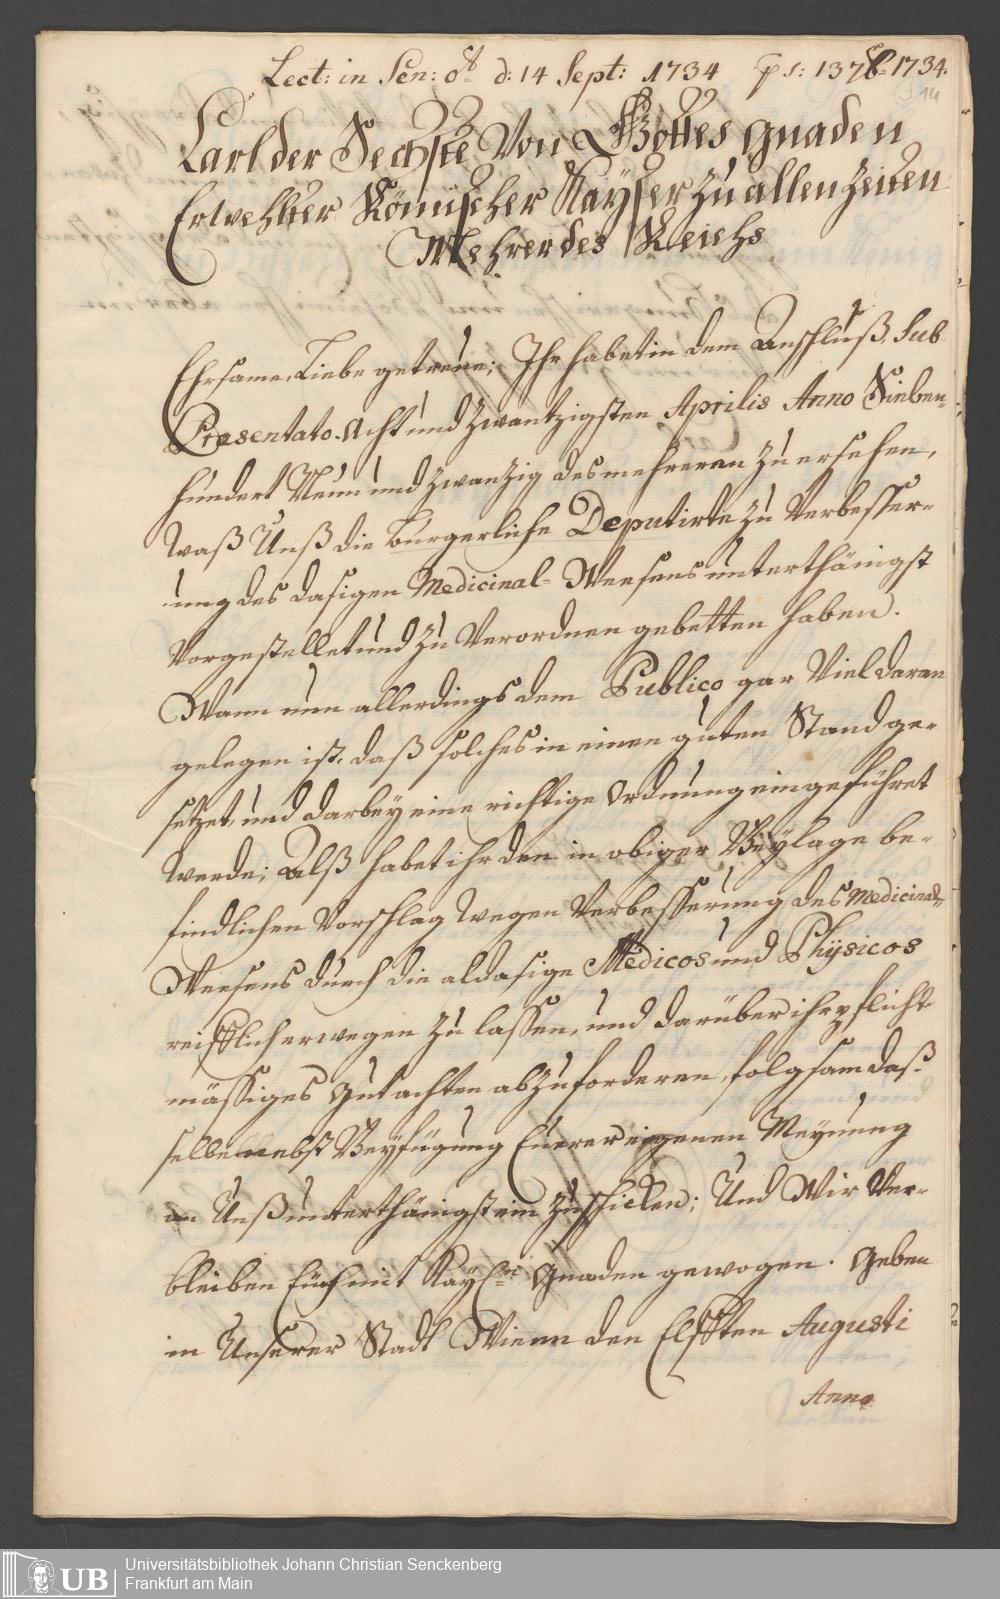 Lect: in Sen: d: 14 Sept: 1734 ps: 13 7br 1734.
14
Carl der Sechste Von Gottes gnaden
Erwehlter Römischer Kayser zu allen Zeiten
Mehrer des Reichs
Ehrsame Liebe getreüe; Ihr habet in dem Anschluß sub
Præsentato Acht und zwantzigsten Aprilis Anno Sieben-
hundert Neun und zwanzig des mehreren zu ersehen,
waß Unß die Bürgerliche Deputirte zu Verbesser-
ung des dasigen Medicinal-Weesens unterthänigst
Vorgestellet und zu Verordnen gebetten haben.
Wann nun allerdings dem Publico gar Viel daran
gelegen ist, daß solches in einen guten Stand ge-
setzet, und darbey eine richtige Ordnung eingeführet
werde; Alß habet ihr den in obiger Beylage be-
findlichen Vorschlag wegen Verbesserung des Medicinal-
Weesens durch die aldasige Medicos und Physicos
reifflich erwegen zu lassen, und darüber ihr pflicht
mässiges gutachten abzuforderen, folgsam daß-
selbe nebst Beyfügung Euerer eigenen Meynung
an Unß unterthänigst ein zu schicken; Und Wir Ver-
bleiben Euch mit Kayl. Gnaden gewogen. Geben
in Unserer Stadt Wienn den Eilfften Augusti
Anno
UB
Universitätsbibliothek Johann Christian Senckenberg
Frankfurt am Main